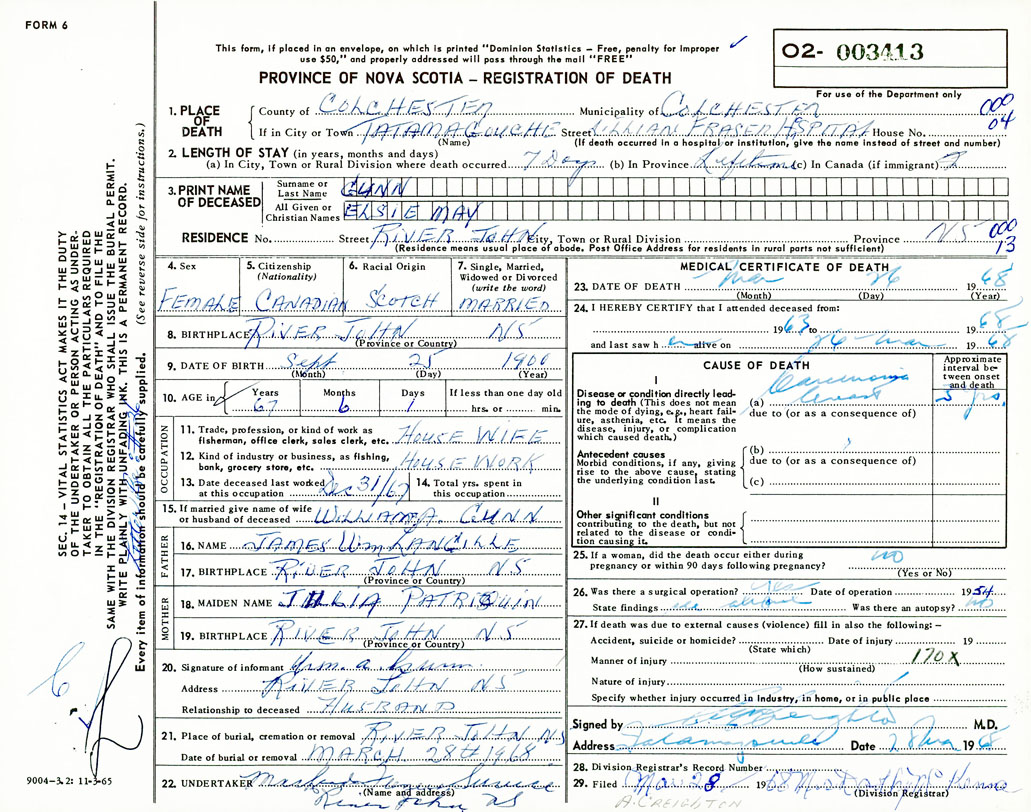 FORM 6
This form, if placed in an envelope, on which is printed "Dominion Statistics – Free, penalty for improper
use $50," and properly addressed will pass through the mail "FREE"
O2- 003413
For use of the Department only
PROVINCE OF NOVA SCOTIA – REGISTRATION OF DEATH
1. PLACE OF DEATH
County of COLCHESTER Municipality of COLCHESTER 000
If in City or Town TATAMAGOUCHE Street LILLIAN FRASER HOSPITAL House No. 04
(Name) (If death occurred in a hospital or institution, give the name instead of street and number)
2. LENGTH OF STAY (in years, months and days)
(a) In City, Town or Rural Division where death occurred 7 Days (b) In Province Lifetime (c) In Canada (if immigrant)
3. PRINT NAME OF DECEASED
Surname or Last Name GUNN
All Given or Christian Names ELSIE MAY
RESIDENCE No. Street RIVER JOHN City, Town or Rural Division Province NS 000
(Residence means usual place of abode. Post Office Address for residents in rural parts not sufficient) 13
4. Sex FEMALE
5. Citizenship (Nationality) CANADIAN
6. Racial Origin SCOTCH
7. Single, Married, Widowed or Divorced (write the word) MARRIED
8. BIRTHPLACE RIVER JOHN NS
(Province or Country)
9. DATE OF BIRTH Sept 25 1900
(Month) (Day) (Year)
10. AGE in Years 67 Months 6 Days 1 If less than one day old
hrs. or min.
OCCUPATION
11. Trade, profession, or kind of work as
fisherman, office clerk, sales clerk, etc. HOUSE WIFE
12. Kind of industry or business, as fishing,
bank, grocery store, etc. HOUSE WORK
13. Date deceased last worked
at this occupation Dec 31/67
14. Total yrs. spent in
this occupation
15. If married give name of wife
or husband of deceased WILLIAM A. GUNN
FATHER
16. NAME JAMES WM LANGILLE
17. BIRTHPLACE RIVER JOHN NS
(Province or Country)
MOTHER
18. MAIDEN NAME JULIA PATRIQUIN
19. BIRTHPLACE RIVER JOHN NS
(Province or Country)
20. Signature of informant Wm. A. Gunn
Address RIVER JOHN NS
Relationship to deceased HUSBAND
21. Place of burial, cremation or removal RIVER JOHN NS
Date of burial or removal MARCH 28TH 1968
22. UNDERTAKER
(Name and address)
River John NS
MEDICAL CERTIFICATE OF DEATH
23. DATE OF DEATH Mar 26 1968
(Month) (Day) (Year)
24. I HEREBY CERTIFY that I attended deceased from:
1963 to 1968
and last saw her alive on 26 Mar 1968
CAUSE OF DEATH
Approximate interval between onset and death
I
Disease or condition directly leading to death (This does not mean
the mode of dying, e.g., heart failure, asthenia, etc. It means the
disease, injury, or complication
which caused death.)
(a) Carcinoma breast 5 yrs.
due to (or as a consequence of)
Antecedent causes
Morbid conditions, if any, giving
rise to the above cause, stating
the underlying condition last.
(b)
due to (or as a consequence of)
(c)
II
Other significant conditions
contributing to the death, but not
related to the disease or condition causing it.
25. If a woman, did the death occur either during
pregnancy or within 90 days following pregnancy? no
(Yes or No)
26. Was there a surgical operation? Yes Date of operation 1954
State findings as above Was there an autopsy? no
27. If death was due to external causes (violence) fill in also the following: –
Accident, suicide or homicide? Date of injury 19
(State which)
Manner of injury 170X
(How sustained)
Nature of injury
Specify whether injury occurred in Industry, in home, or in public place
Signed by M.D.
Address Tatamagouche Date 28 Mar 1968
28. Division Registrar's Record Number
29. Filed Mar 28 1968
(Division Registrar)
A. CREIGHTON
SEC. 14 – VITAL STATISTICS ACT MAKES IT THE DUTY
OF THE UNDERTAKER OR PERSON ACTING AS UNDER-
TAKER TO OBTAIN ALL THE PARTICULARS REQUIRED
IN THE "REGISTRATION OF DEATH" AND TO FILE THE
SAME WITH THE DIVISION REGISTRAR WHO SHALL ISSUE THE BURIAL PERMIT.
WRITE PLAINLY WITH UNFADING INK. THIS IS A PERMANENT RECORD.
Every item of information should be carefully supplied. (See reverse side for instructions.)
9004-3.2: 11-3-65